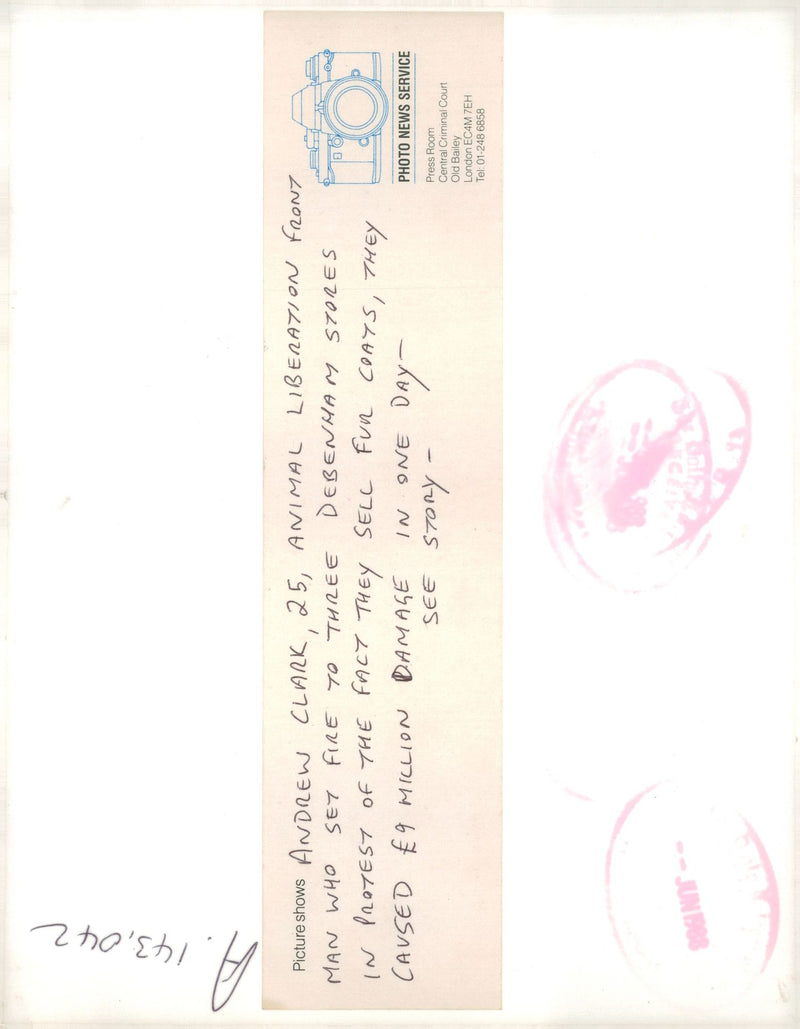 PHOTO NEWS SERVICE
Press Room
Central Criminal Court
Old Bailey
London EC4M 7EH
Tel: 01-248 6858
Picture shows ANDREW CLARK, 25, ANIMAL LIBERATION FRONT
MAN WHO SET FIRE TO THREE DEBENHAM STORES
IN PROTEST OF THE FACT THEY SELL FUR COATS, THEY
CAUSED £9 MILLION DAMAGE IN ONE DAY—
SEE STORY —
A.143,042
-- JUN 1988